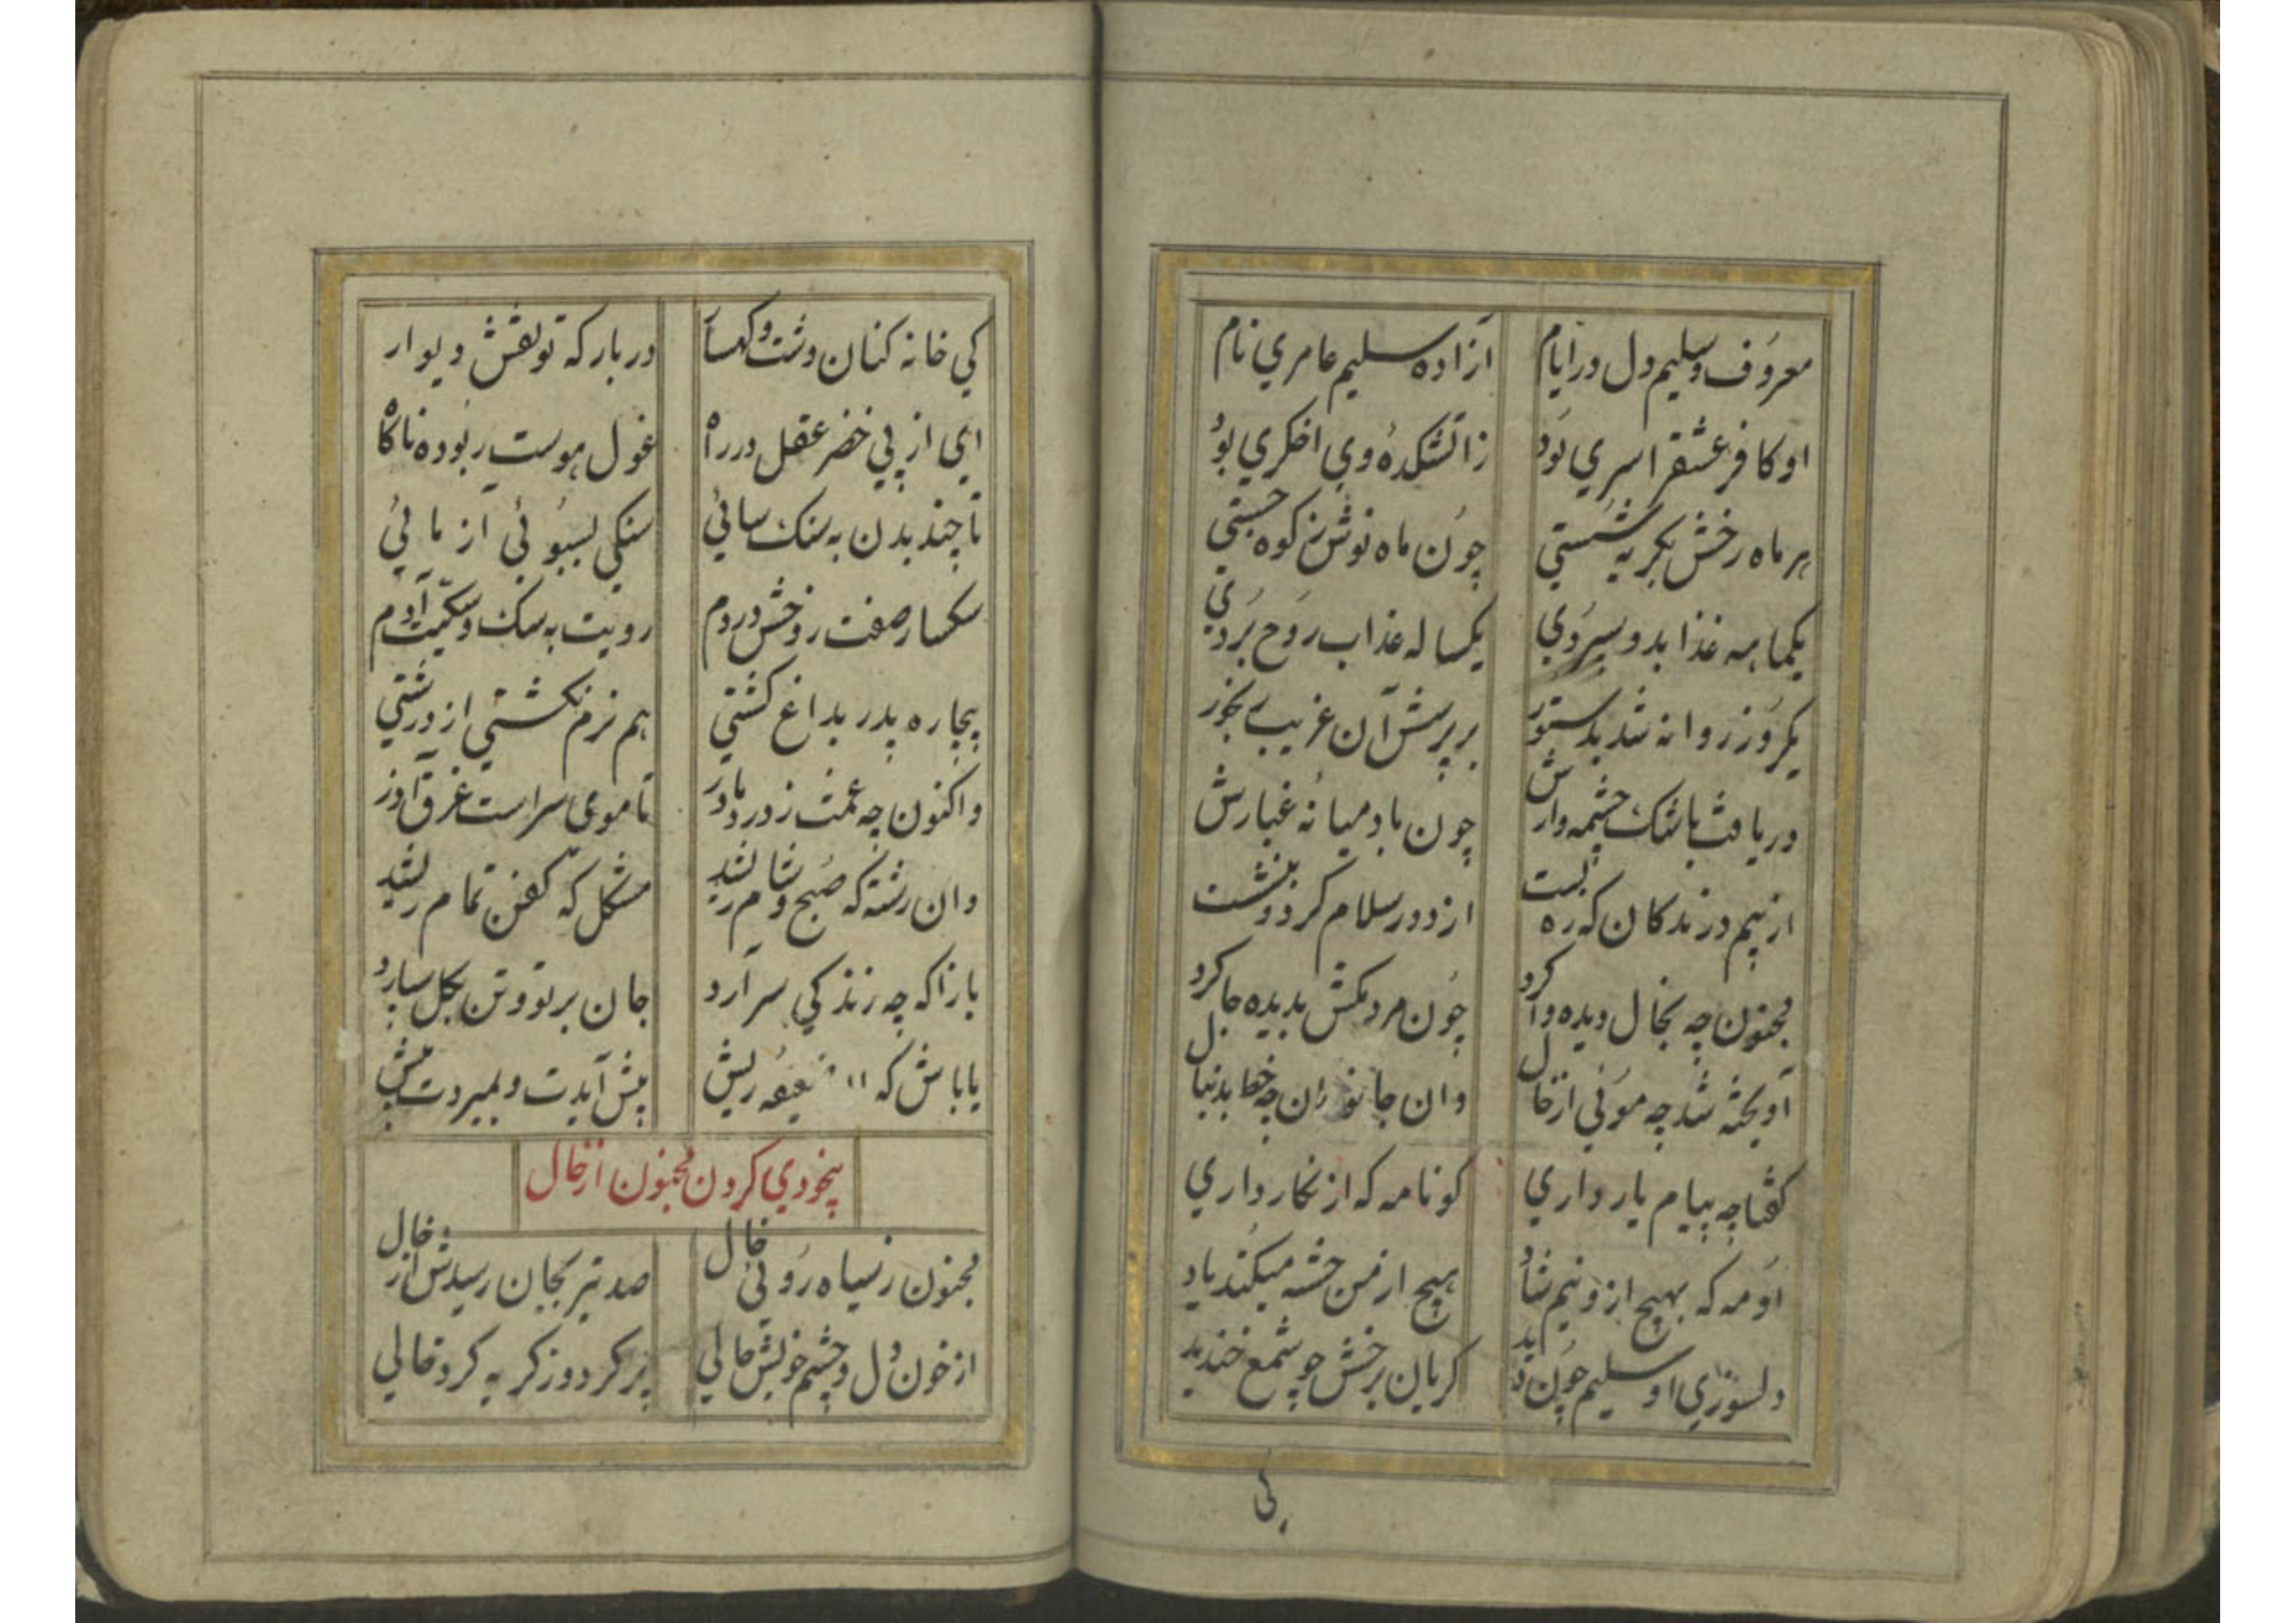 معروف و سلیم دل در ایام آزاده سلیم عامری نام
او کافر عشق را سری بود ز آتشکدهٔ وی اخگری بود
هر ماه رخش بگریه شستی چون ماه نوش ز کوه جستی
یکماهه غذا بدو سپردی یکساله عذاب روح بردی
یکروز روانه شد بدستور بر پرسش آن غریب رنجور
دریافت باشک چشمه وارش چون باد میانهٔ غبارش
از بیم درندکان که ره بست از دور سلام کرد و بنشست
مجنون چه بخال دیده وا کرد چون مردمکش بدیده جا کرد
آویخته شد چه موئی از خال وان جانوران چه خط بدنبال
گفتا چه پیام یار داری کو نامه که از نکار داری
او مه که بهیچ ازو نیم شاد هیچ از من خسته میکند یاد
دلسوزی او سلیم چون دید کریان برخش چو شمع خندید
کی
کی خانه کنان دشت و کهسار در بار که تو نقش دیوار
ای از پی خضر عقل در راه غول هوست ربوده ناکاه
تا چند بدن به سنک سائی سنکی بسبوئی ازمائی
سکسار صفت رو خش در دم رویت به سک و سکیت آدم
بیچاره پدر بداغ کشتی هم نرم نکشتی از درشتی
و اکنون چه غمت ز درد مادر تا موی سر است غرق آذر
وان رشته که صبح و شام ریشد مشکل که کفن تمام ریشد
باز آکه چه زندکی سر آرد جان بر تو و تن بکل سپارد
یا باش که ضعیفه ریش پیش آیدت و بمیردت پیش
بیخودی کردن مجنون از خال
مجنون ز سیاه روئی خال صد تیر بجان رسیدش از خال
از خون دل و چشم خویش حالی پر کرد و ز کریه کرد خالی